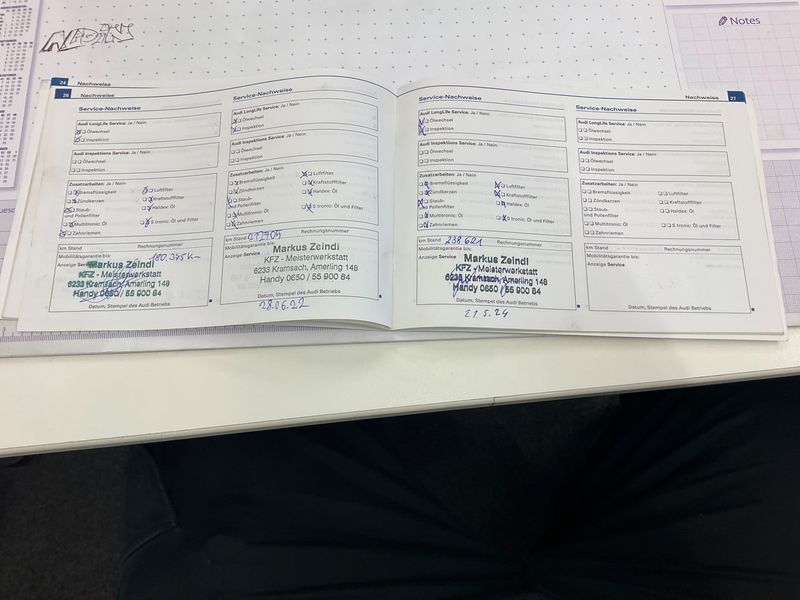 Notes
24 Nachweise
26 Nachweise
Service-Nachweise
Audi LongLife Service: Ja / Nein
Ölwechsel
Inspektion
Audi Inspektions Service: Ja / Nein
Ölwechsel
Inspektion
Zusatzarbeiten: Ja / Nein
Bremsflüssigkeit
Luftfilter
Zündkerzen
Kraftstofffilter
Staub-
und Pollenfilter
Haldex: Öl
Multitronic: Öl
S tronic: Öl und Filter
Zahnriemen
km Stand
Rechnungsnummer
Mobilitätsgarantie bis:
Anzeige Service
Markus Zeindl
KFZ - Meisterwerkstatt
6233 Kramsach, Amerling 148
Handy 0650 / 55 900 84
Datum, Stempel des Audi Betriebs
Service-Nachweise
Audi LongLife Service: Ja / Nein
Ölwechsel
Inspektion
Audi Inspektions Service: Ja / Nein
Ölwechsel
Inspektion
Zusatzarbeiten: Ja / Nein
Bremsflüssigkeit
Luftfilter
Zündkerzen
Kraftstofffilter
Staub-
und Pollenfilter
Haldex: Öl
Multitronic: Öl
S tronic: Öl und Filter
Zahnriemen
km Stand
Rechnungsnummer
Mobilitätsgarantie bis:
Anzeige Service
Markus Zeindl
KFZ - Meisterwerkstatt
6233 Kramsach, Amerling 148
Handy 0650 / 55 900 84
Datum, Stempel des Audi Betriebs
28.06.22
Nachweise 27
Service-Nachweise
Audi LongLife Service: Ja / Nein
Ölwechsel
Inspektion
Audi Inspektions Service: Ja / Nein
Ölwechsel
Inspektion
Zusatzarbeiten: Ja / Nein
Bremsflüssigkeit
Luftfilter
Zündkerzen
Kraftstofffilter
Staub-
und Pollenfilter
Haldex: Öl
Multitronic: Öl
S tronic: Öl und Filter
Zahnriemen
km Stand 238621
Rechnungsnummer
Mobilitätsgarantie bis:
Anzeige Service
Markus Zeindl
KFZ - Meisterwerkstatt
6233 Kramsach, Amerling 148
Handy 0650 / 55 900 84
Datum, Stempel des Audi Betriebs
21.5.24
Service-Nachweise
Audi LongLife Service: Ja / Nein
Ölwechsel
Inspektion
Audi Inspektions Service: Ja / Nein
Ölwechsel
Inspektion
Zusatzarbeiten: Ja / Nein
Bremsflüssigkeit
Luftfilter
Zündkerzen
Kraftstofffilter
Staub-
und Pollenfilter
Haldex: Öl
Multitronic: Öl
S tronic: Öl und Filter
Zahnriemen
km Stand
Rechnungsnummer
Mobilitätsgarantie bis:
Anzeige Service
Datum, Stempel des Audi Betriebs